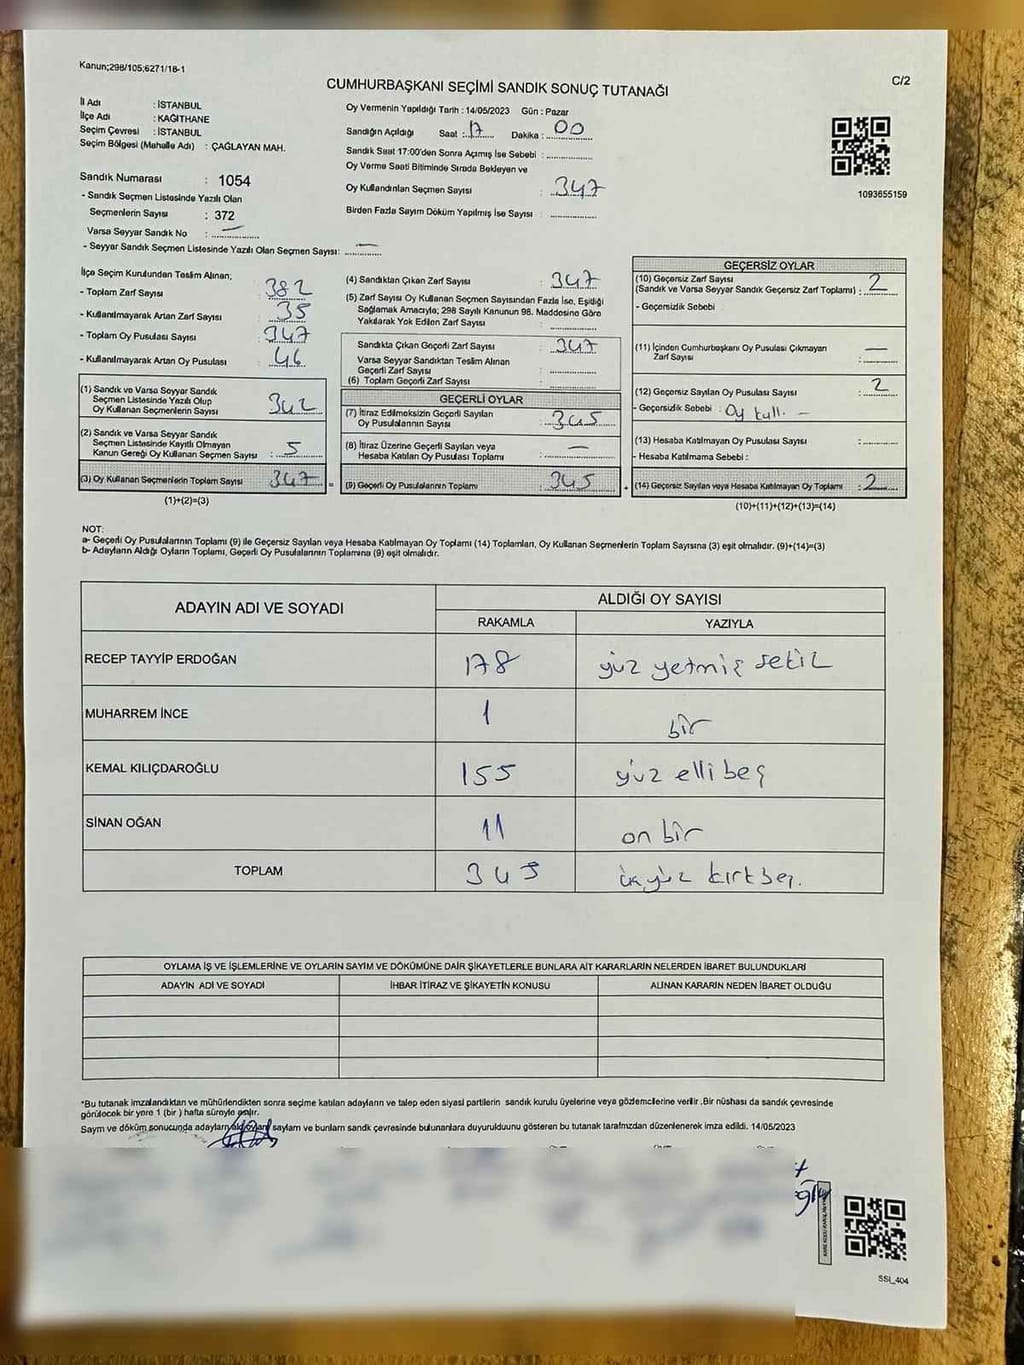 Kanun;298/105;6271/18-1
CUMHURBAŞKANI SEÇİMİ SANDIK SONUÇ TUTANAĞI
C/2
İl Adı : İSTANBUL
İlçe Adı : KAĞITHANE
Seçim Çevresi : İSTANBUL
Seçim Bölgesi (Mahalle Adı) : ÇAĞLAYAN MAH.
Sandık Numarası : 1054
- Sandık Seçmen Listesinde Yazılı Olan
Seçmenlerin Sayısı : 372
Varsa Seyyar Sandık No : —
- Seyyar Sandık Seçmen Listesinde Yazılı Olan Seçmen Sayısı: —
Oy Vermenin Yapıldığı Tarih : 14/05/2023 Gün : Pazar
Sandığın Açıldığı Saat : 17 Dakika : 00
Sandık Saat 17:00'den Sonra Açımış İse Sebebi :
Oy Verme Saati Bitiminde Sırada Bekleyen ve
Oy Kullandırılan Seçmen Sayısı : 347
Birden Fazla Sayım Döküm Yapılmış İse Sayısı :
1093655159
İlçe Seçim Kurulundan Teslim Alınan;
- Toplam Zarf Sayısı : 382
- Kullanılmayarak Artan Zarf Sayısı : 35
- Toplam Oy Pusulası Sayısı : 347
- Kullanılmayarak Artan Oy Pusulası : 46
(1) Sandık ve Varsa Seyyar Sandık
Seçmen Listesinde Yazılı Olup
Oy Kullanan Seçmenlerin Sayısı : 342
(2) Sandık ve Varsa Seyyar Sandık
Seçmen Listesinde Kayıtlı Olmayan
Kanun Gereği Oy Kullanan Seçmen Sayısı : 5
(3) Oy Kullanan Seçmenlerin Toplam Sayısı : 347
(1)+(2)=(3)
(4) Sandıktan Çıkan Zarf Sayısı : 347
(5) Zarf Sayısı Oy Kullanan Seçmen Sayısından Fazla İse, Eşitliği
Sağlamak Amacıyla; 298 Sayılı Kanunun 98. Maddesine Göre
Yakılarak Yok Edilen Zarf Sayısı :
Sandıkta Çıkan Geçerli Zarf Sayısı : 347
Varsa Seyyar Sandıktan Teslim Alınan
Geçerli Zarf Sayısı :
(6) Toplam Geçerli Zarf Sayısı :
GEÇERLİ OYLAR
(7) İtiraz Edilmeksizin Geçerli Sayılan
Oy Pusulasının Sayısı : 345
(8) İtiraz Üzerine Geçerli Sayılan veya
Hesaba Katılan Oy Pusulası Toplamı : —
(9) Geçerli Oy Pusulalarının Toplamı : 345
GEÇERSİZ OYLAR
(10) Geçersiz Zarf Sayısı
(Sandık ve Varsa Seyyar Sandık Geçersiz Zarf Toplamı) : 2
- Geçersizlik Sebebi :
(11) İçinden Cumhurbaşkanı Oy Pusulası Çıkmayan
Zarf Sayısı : —
(12) Geçersiz Sayılan Oy Pusulası Sayısı : 2
- Geçersizlik Sebebi : Oy kull. —
(13) Hesaba Katılmayan Oy Pusulası Sayısı :
- Hesaba Katılmama Sebebi :
(14) Geçersiz Sayılan veya Hesaba Katılmayan Oy Toplamı : 2
(10)+(11)+(12)+(13)=(14)
NOT:
a- Geçerli Oy Pusulalarının Toplamı (9) ile Geçersiz Sayılan veya Hesaba Katılmayan Oy Toplamı (14) Toplamları, Oy Kullanan Seçmenlerin Toplam Sayısına (3) eşit olmalıdır. (9)+(14)=(3)
b- Adayların Aldığı Oyların Toplamı, Geçerli Oy Pusulalarının Toplamına (9) eşit olmalıdır.
ADAYIN ADI VE SOYADI
ALDIĞI OY SAYISI
RAKAMLA YAZIYLA
RECEP TAYYİP ERDOĞAN 178 yüz yetmiş sekiz
MUHARREM İNCE 1 bir
KEMAL KILIÇDAROĞLU 155 yüz elli beş
SİNAN OĞAN 11 on bir
TOPLAM 345 üçyüz kırkbeş.
OYLAMA İŞ VE İŞLEMLERİNE VE OYLARIN SAYIM VE DÖKÜMÜNE DAİR ŞİKAYETLERLE BUNLARA AİT KARARLARIN NELERDEN İBARET BULUNDUKLARI
ADAYIN ADI VE SOYADI İHBAR İTİRAZ VE ŞİKAYETİN KONUSU ALINAN KARARIN NEDEN İBARET OLDUĞU
*Bu tutanak imzalandıktan ve mühürlendikten sonra seçime katılan adayların ve talep eden siyasi partilerin sandık kurulu üyelerine veya gözlemcilerine verilir.Bir nüshası da sandık çevresinde
görülecek bir yere 1 (bir ) hafta süreyle asılır.
Sayım ve döküm sonucunda adayların aldıkları oyların sayılarını ve bunların sandık çevresinde bulunanlara duyurulduunu gösteren bu tutanak tarafımızdan düzenlenerek imza edildi. 14/05/2023
SSI_404